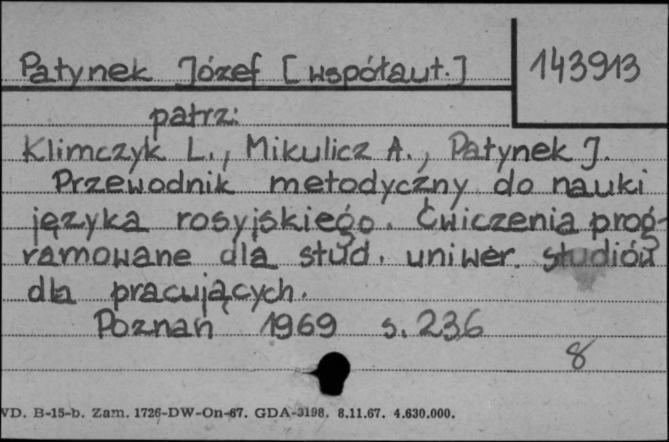 Patynek Józef [współaut.] 143913
patrz:
Klimczyk L., Mikulicz A., Patynek J.
Przewodnik metodyczny do nauki
języka rosyjskiego. Ćwiczenia prog-
ramowane dla stud. uniwer. studiów
dla pracujących.
Poznań 1969 s. 236
8
VD. B-15-b. Zam. 1726-DW-On-67. GDA-3198. 8.11.67. 4.630.000.